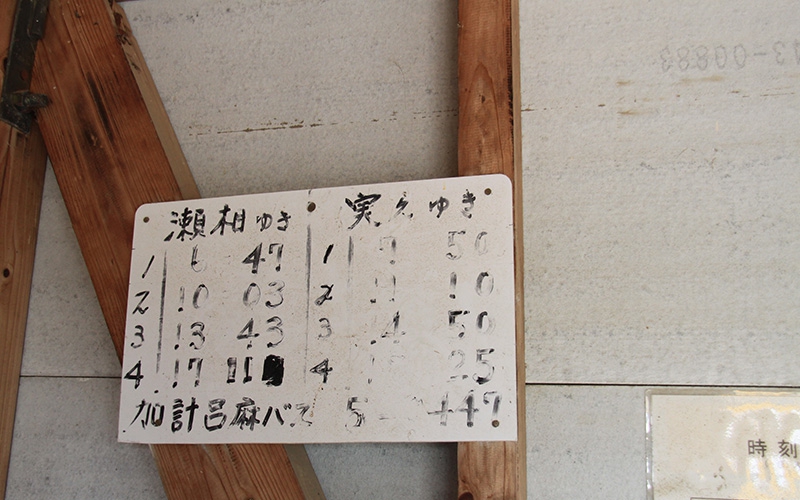 瀬相ゆき 実久ゆき
1 6 47 1 7 50
2 10 03 2 11 10
3 13 43 3 14 50
4 17 11 4 25
加計呂麻バス 5 447
時刻